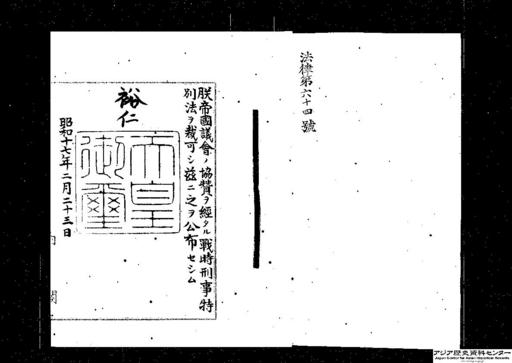 法律第六十四號
朕帝國議會ノ協贊ヲ經タル戰時刑事特
別法ヲ裁可シ茲ニ之ヲ公布セシム
裕仁
天皇御璽
昭和十七年二月二十三日
内閣
アジア歴史資料センター
Japan Center for Asian Historical Records